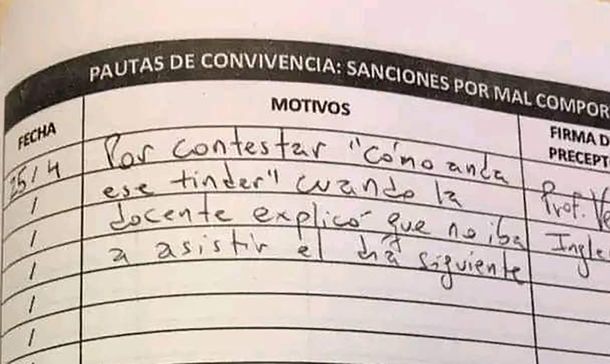 PAUTAS DE CONVIVENCIA: SANCIONES POR MAL COMPOR
FECHA
MOTIVOS
FIRMA D
PRECEPT
25/4
Por contestar "Cómo anda
ese tinder" cuando la
docente explicó que no iba
a asistir el día siguiente
Prof. Ve
Ingle
/
/
/
/
/
/